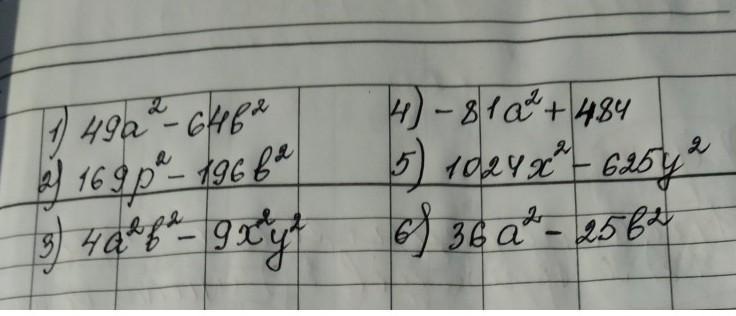 1) 49a² - 64b²
2) 169p² - 196b²
3) 4a²b² - 9x²y²
4) - 81a² + 484
5) 1024x² - 625y²
6) 36a² - 25b²